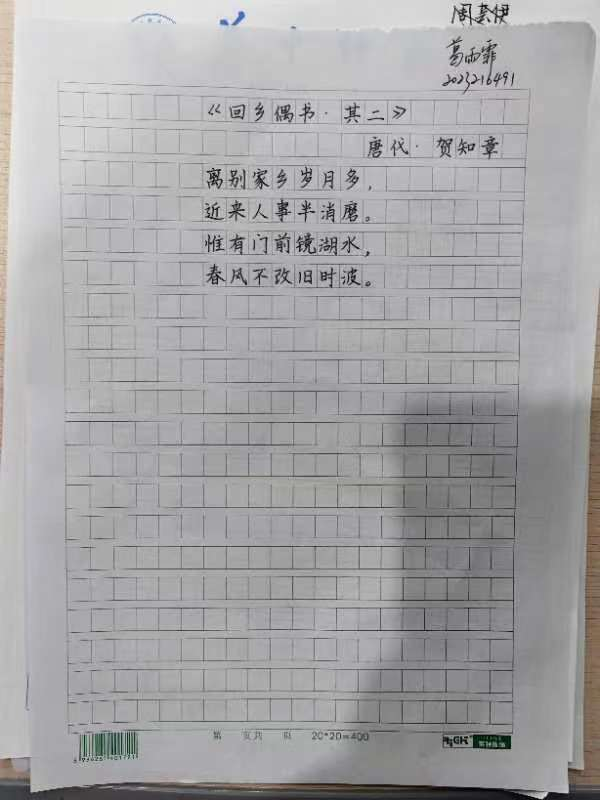 葛雨霏
2023216491
《回乡偶书·其二》
唐代·贺知章
离别家乡岁月多，
近来人事半消磨。
惟有门前镜湖水，
春风不改旧时波。
第 页共 页 20*20=400